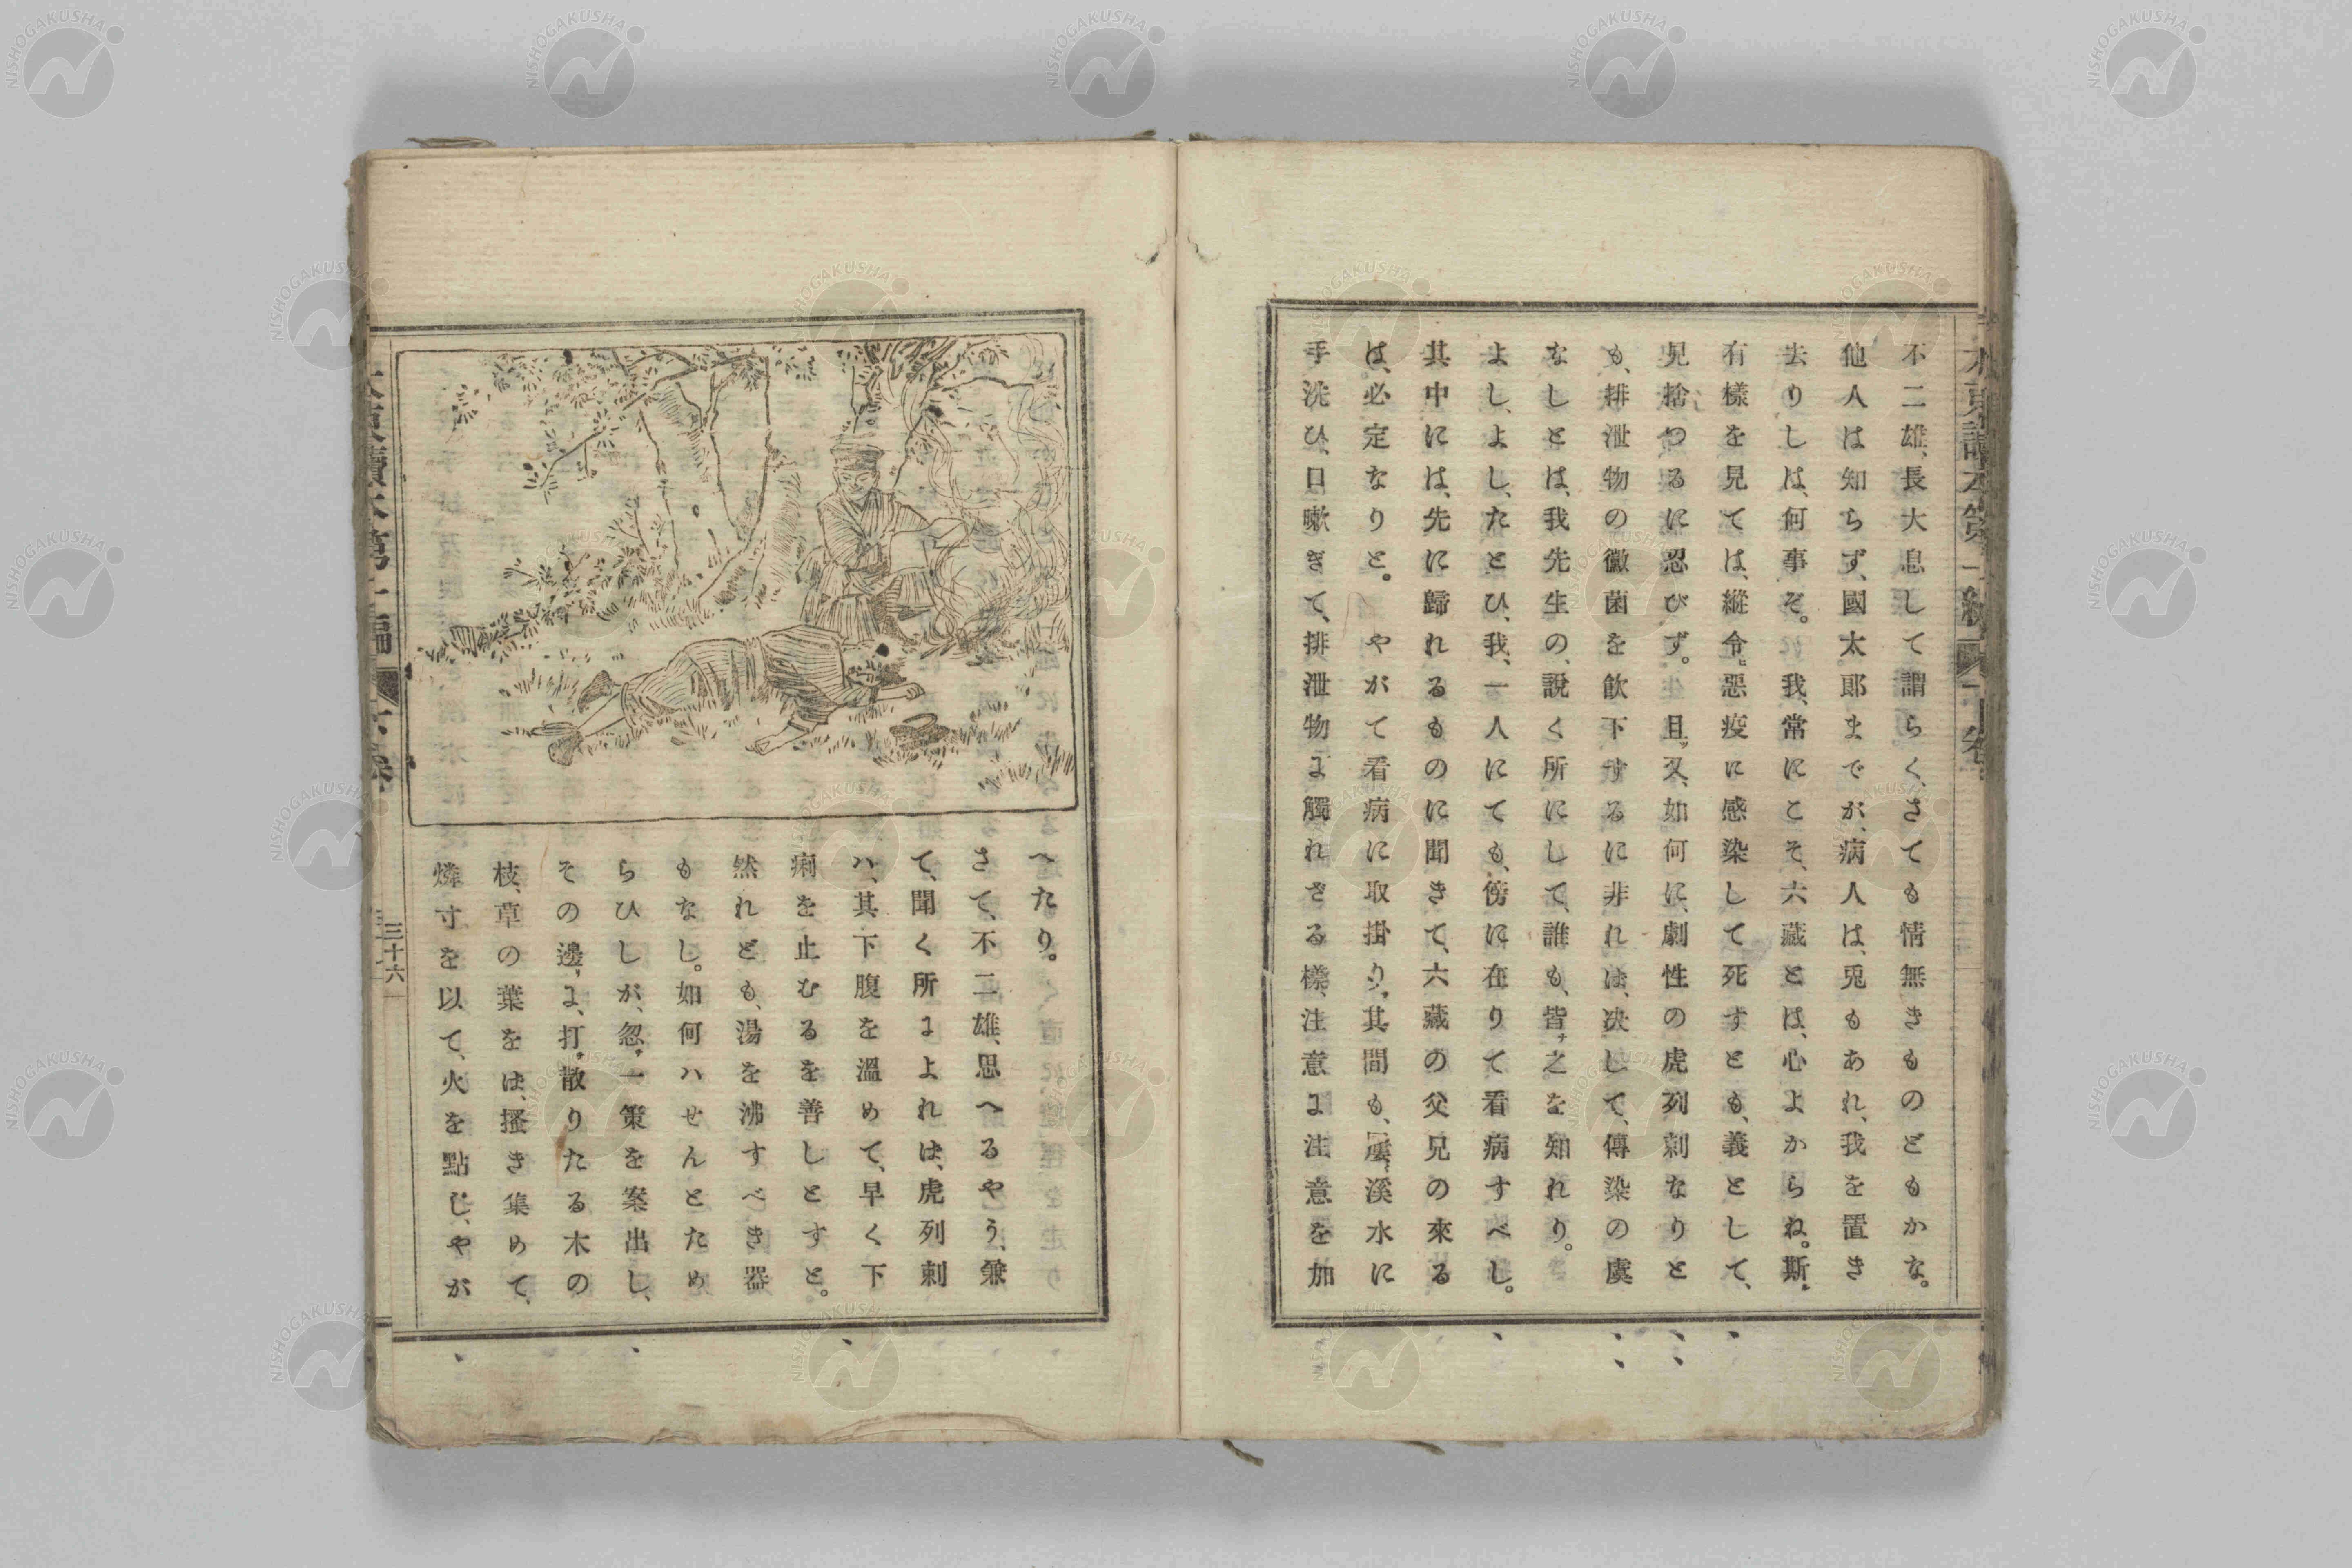 不二雄、長大息して謂らく、さても情無きものどもかな。
他人は知らず、國太郎までが、病人は、兎もあれ、我を置き
去りしは、何事ぞ。我、常にこそ、六藏とは、心よからね。斯、
有樣を見ては、縱令、惡疫に感染して死すとも、義として、
見捨つるに忍びず。且、又、如何に、劇性の虎列剌なりと
も、排泄物の黴菌を飮下するに非れは、决して、傳染の虞
なしとは、我先生の、說く所にして、誰も、皆、之を知れり。
よし、よし、たとひ、我、一人にても、傍に在りて看病すべし。
其中には、先に歸れるものに聞きて、六藏の父兄の來る
ば、必定なりと。やがて看病に取掛り、其間も、屢、溪水に
手洗ひ、口嗽ぎて、排泄物よ觸れざる樣、注意よ注意を加
へたり。
さて、不二雄、思へるやう、兼
て、聞く所よよれは、虎列剌
ハ、其下腹を溫めて、早く下
痢を止むるを善しとすと。
然れども、湯を沸すべき器
もなし。如何ハせんとため
らひしが、忽、一策を案出し、
その邊よ、打散りたる木の
枝、草の葉をは、搔き集めて、
燐寸を以て、火を點じ、やが
三十六
NISHOGAKUSHA